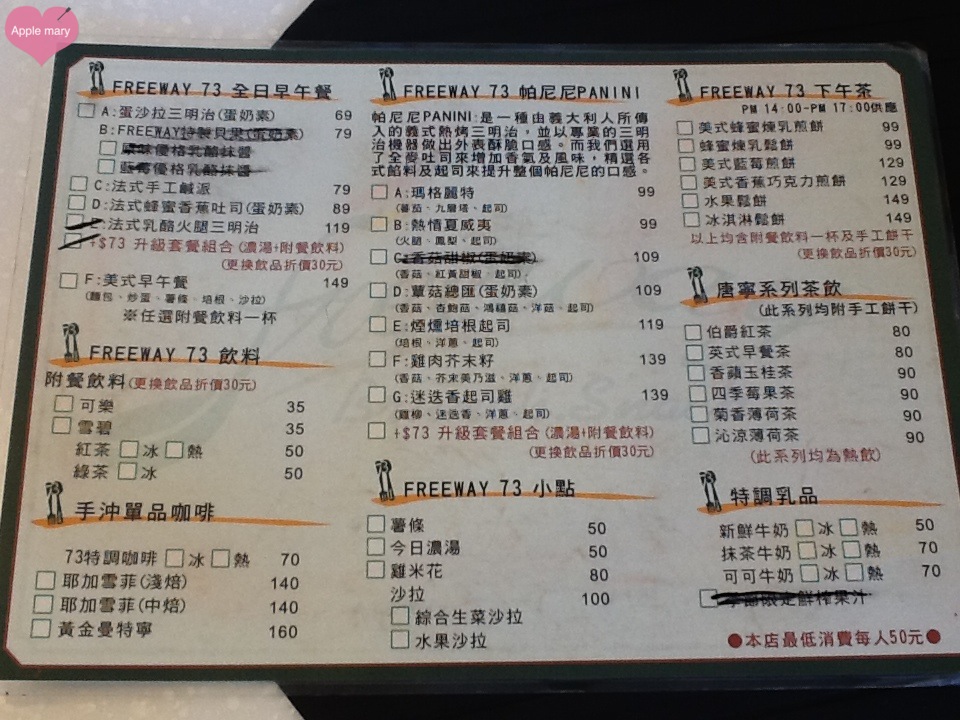 Apple mary
FREEWAY 73 全日早午餐
A:蛋沙拉三明治(蛋奶素) 69
B:FREEWAY特製貝果(蛋奶素) 79
原味優格乳酪抹醬
藍莓優格乳酪抹醬
C:法式手工鹹派 79
D:法式蜂蜜香蕉吐司(蛋奶素) 89
:法式乳酪火腿三明治 119
+$73 升級套餐組合(濃湯+附餐飲料)
(更換飲品折價30元)
F:美式早午餐 149
(麵包、炒蛋、薯條、培根、沙拉)
※任選附餐飲料一杯
FREEWAY 73 飲料
附餐飲料(更換飲品折價30元)
可樂 35
雪碧 35
紅茶 冰 熱 50
綠茶 冰 50
手沖單品咖啡
73特調咖啡 冰 熱 70
耶加雪菲(淺焙) 140
耶加雪菲(中焙) 140
黃金曼特寧 160
FREEWAY 73 帕尼尼PANINI
帕尼尼PANINI:是一種由義大利人所傳
入的義式熱烤三明治，並以專業的三明
治機器做出外表酥脆口感。而我們選用
了全麥吐司來增加香氣及風味，精選各
式餡料及起司來提升整個帕尼尼的口感。
A:瑪格麗特 99
(蕃茄、九層塔、起司)
B:熱情夏威夷 99
(火腿、鳳梨、起司)
C:香菇甜椒(蛋奶素) 109
(香菇、紅黃甜椒、起司)
D:蕈菇總匯(蛋奶素) 109
(香菇、杏鮑菇、鴻禧菇、洋菇、起司)
E:煙燻培根起司 119
(培根、洋蔥、起司)
F:雞肉芥末籽 139
(香菇、芥末美乃滋、洋蔥、起司)
G:迷迭香起司雞 139
(雞柳、迷迭香、洋蔥、起司)
+$73 升級套餐組合(濃湯+附餐飲料)
(更換飲品折價30元)
FREEWAY 73 小點
薯條 50
今日濃湯 50
雞米花 80
沙拉 100
綜合生菜沙拉
水果沙拉
FREEWAY 73 下午茶
PM 14:00-PM 17:00供應
美式蜂蜜煉乳煎餅 99
蜂蜜煉乳鬆餅 99
美式藍莓煎餅 129
美式香蕉巧克力煎餅 129
水果鬆餅 149
冰淇淋鬆餅 149
以上均含附餐飲料一杯及手工餅干
(更換飲品折價30元)
唐寧系列茶飲
(此系列均附手工餅干)
伯爵紅茶 80
英式早餐茶 80
香蘋玉桂茶 90
四季莓果茶 90
菊香薄荷茶 90
沁涼薄荷茶 90
(此系列均為熱飲)
特調乳品
新鮮牛奶 冰 熱 50
抹茶牛奶 冰 熱 70
可可牛奶 冰 熱 70
季節限定鮮榨果汁
●本店最低消費每人50元●